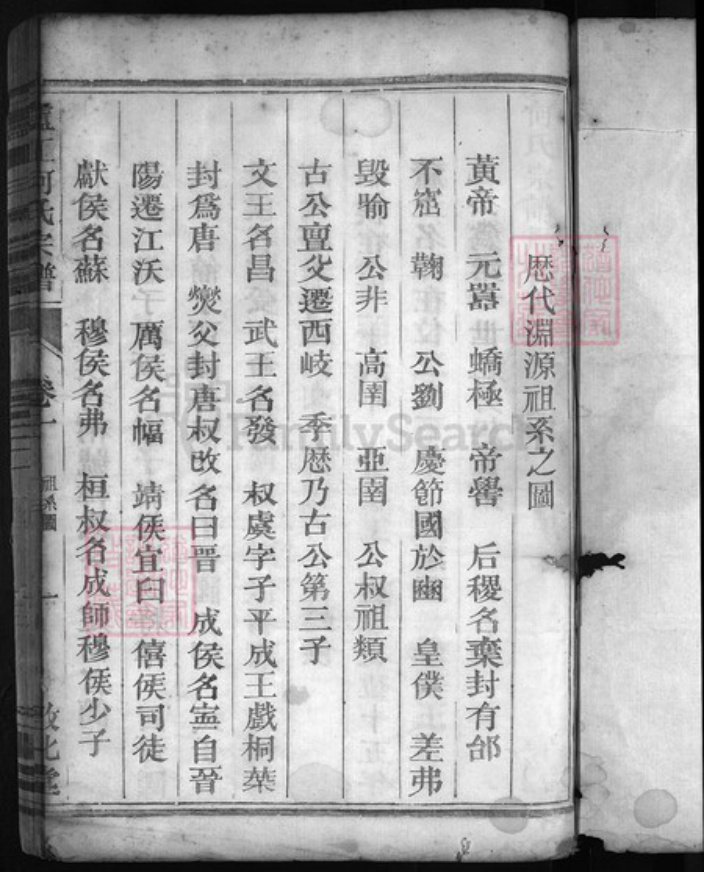 歴代淵源祖系之圖
黄帝　元囂　蟜極　帝嚳　后稷名棄封有邰
不窋　鞠　公劉　慶節國於豳　皇僕　差弗
毁喻　公非　高圉　亞圉　公叔祖類
古公亶父遷西岐　季歴乃古公第三子
文王名昌　武王名發　叔虞字子平成王戲桐葉
封爲唐　燮父封唐叔改名曰晋　成侯名寍自晉
陽遷江沃　厲侯名幅　靖侯宜臼　僖侯司徒
獻侯名蘇　穆侯名弗　桓叔名成師穆侯少子
廬江何氏宗譜　卷一　祖系圖　一
FamilySearch